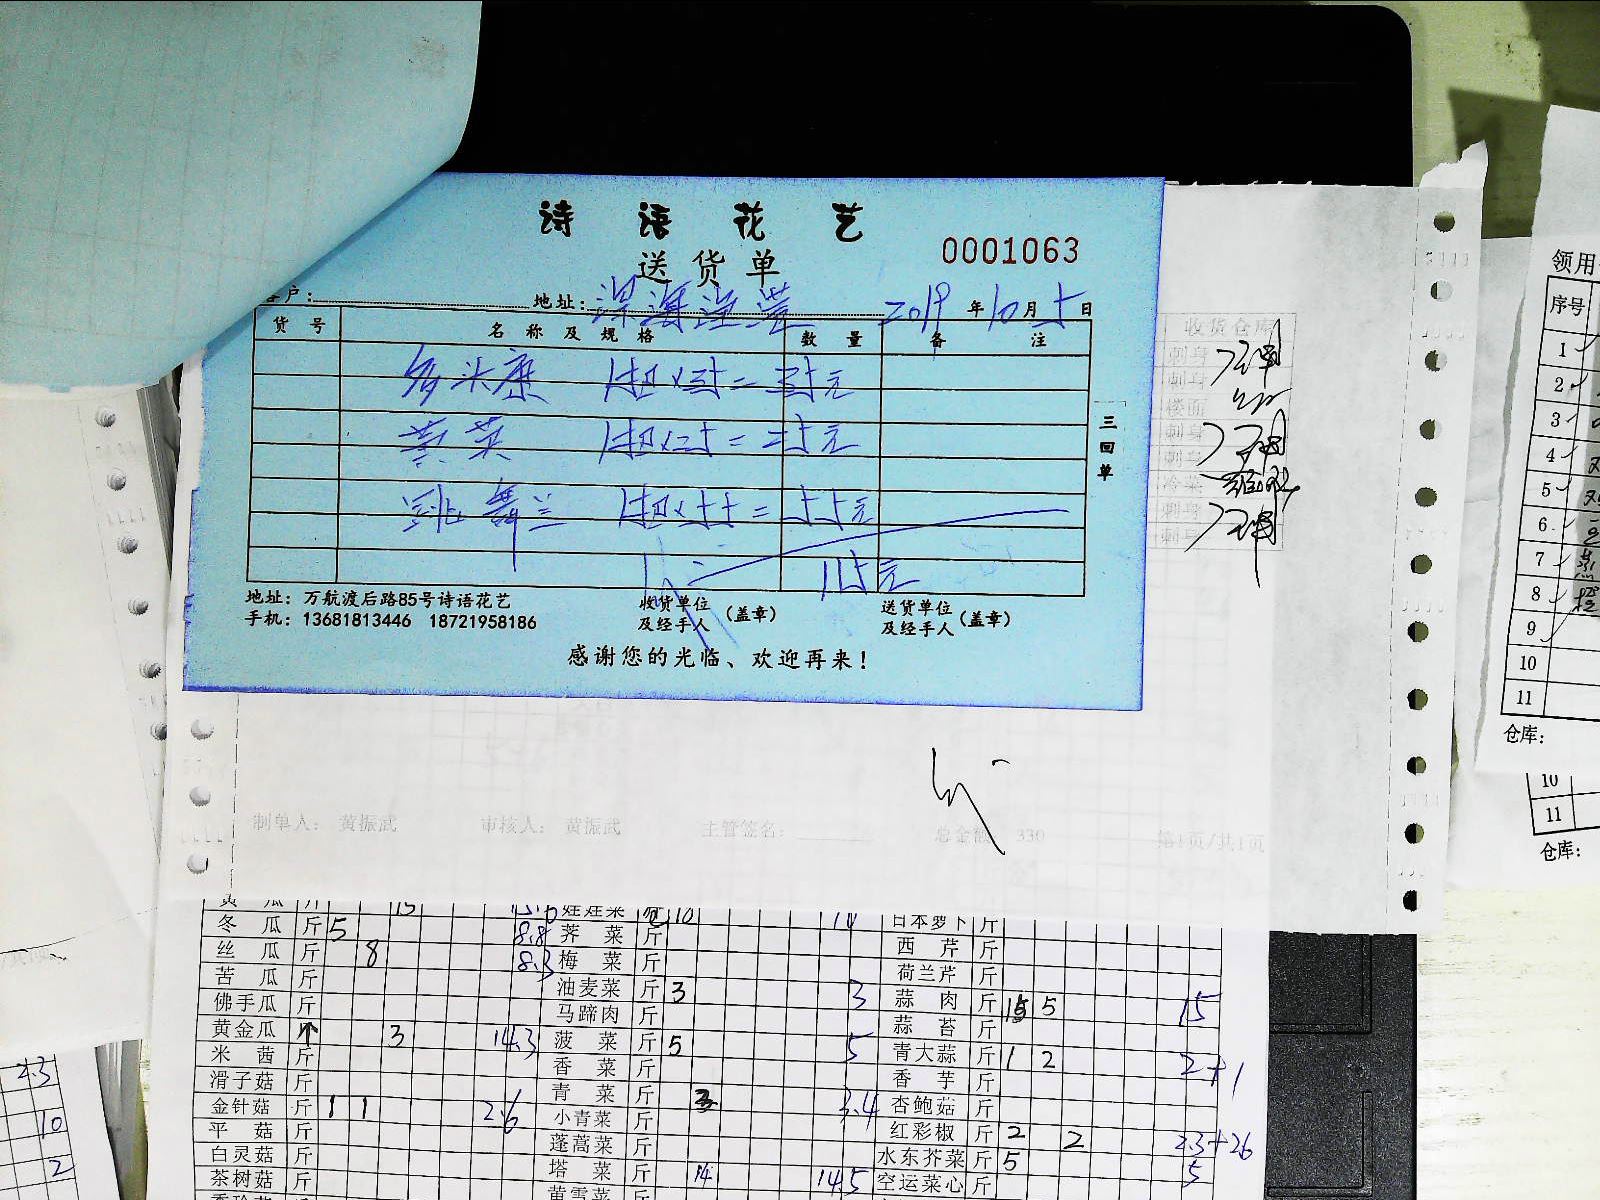 诗语花艺
0001063
送货单
客户: 地址: 2019年10月5日
货号 名称及规格 数量 备注
多头康 1扎×35=35元
黄英 1扎×25=25元
跳舞兰 1扎×55=55元
115元
三回单
地址：万航渡后路85号诗语花艺
手机：13681813446 18721958186
收货单位及经手人(盖章)
送货单位及经手人(盖章)
感谢您的光临、欢迎再来！
收货仓库
刺身
刺身
楼面
刺身
刺身
冷菜
刺身
刺身
制单人： 黄振武 审核人： 黄振武 主管签名： 总金额： 330 第1页/共1页
领用
序号
1
2
3
4
5
6
7
8
9
10
11
仓库：
10
11
仓库：
黄瓜 斤 15 娃娃菜 10 日本萝卜 斤
冬瓜 斤 5 8.8 荠菜 斤 西芹 斤
丝瓜 斤 8 8.3 梅菜 斤 荷兰芹 斤
苦瓜 斤 油麦菜 斤 3 3 蒜肉 斤 15 5 15
佛手瓜 斤 马蹄肉 斤 蒜苔 斤
黄金瓜 个 3 14.3 菠菜 斤 5 5 青大蒜 斤 1 2 2+1
米茜 斤 香菜 斤 香芋 斤
滑子菇 斤 青菜 斤 3 3.4 杏鲍菇 斤
金针菇 斤 1 1 2.6 小青菜 斤 红彩椒 斤 2 2 2.3+2.6
平菇 斤 蓬蒿菜 斤 水东芥菜 斤 5 5
白灵菇 斤 塔菜 斤 14 14.5 空运菜心 斤
茶树菇 斤 黄雪菜 斤
23
10
2